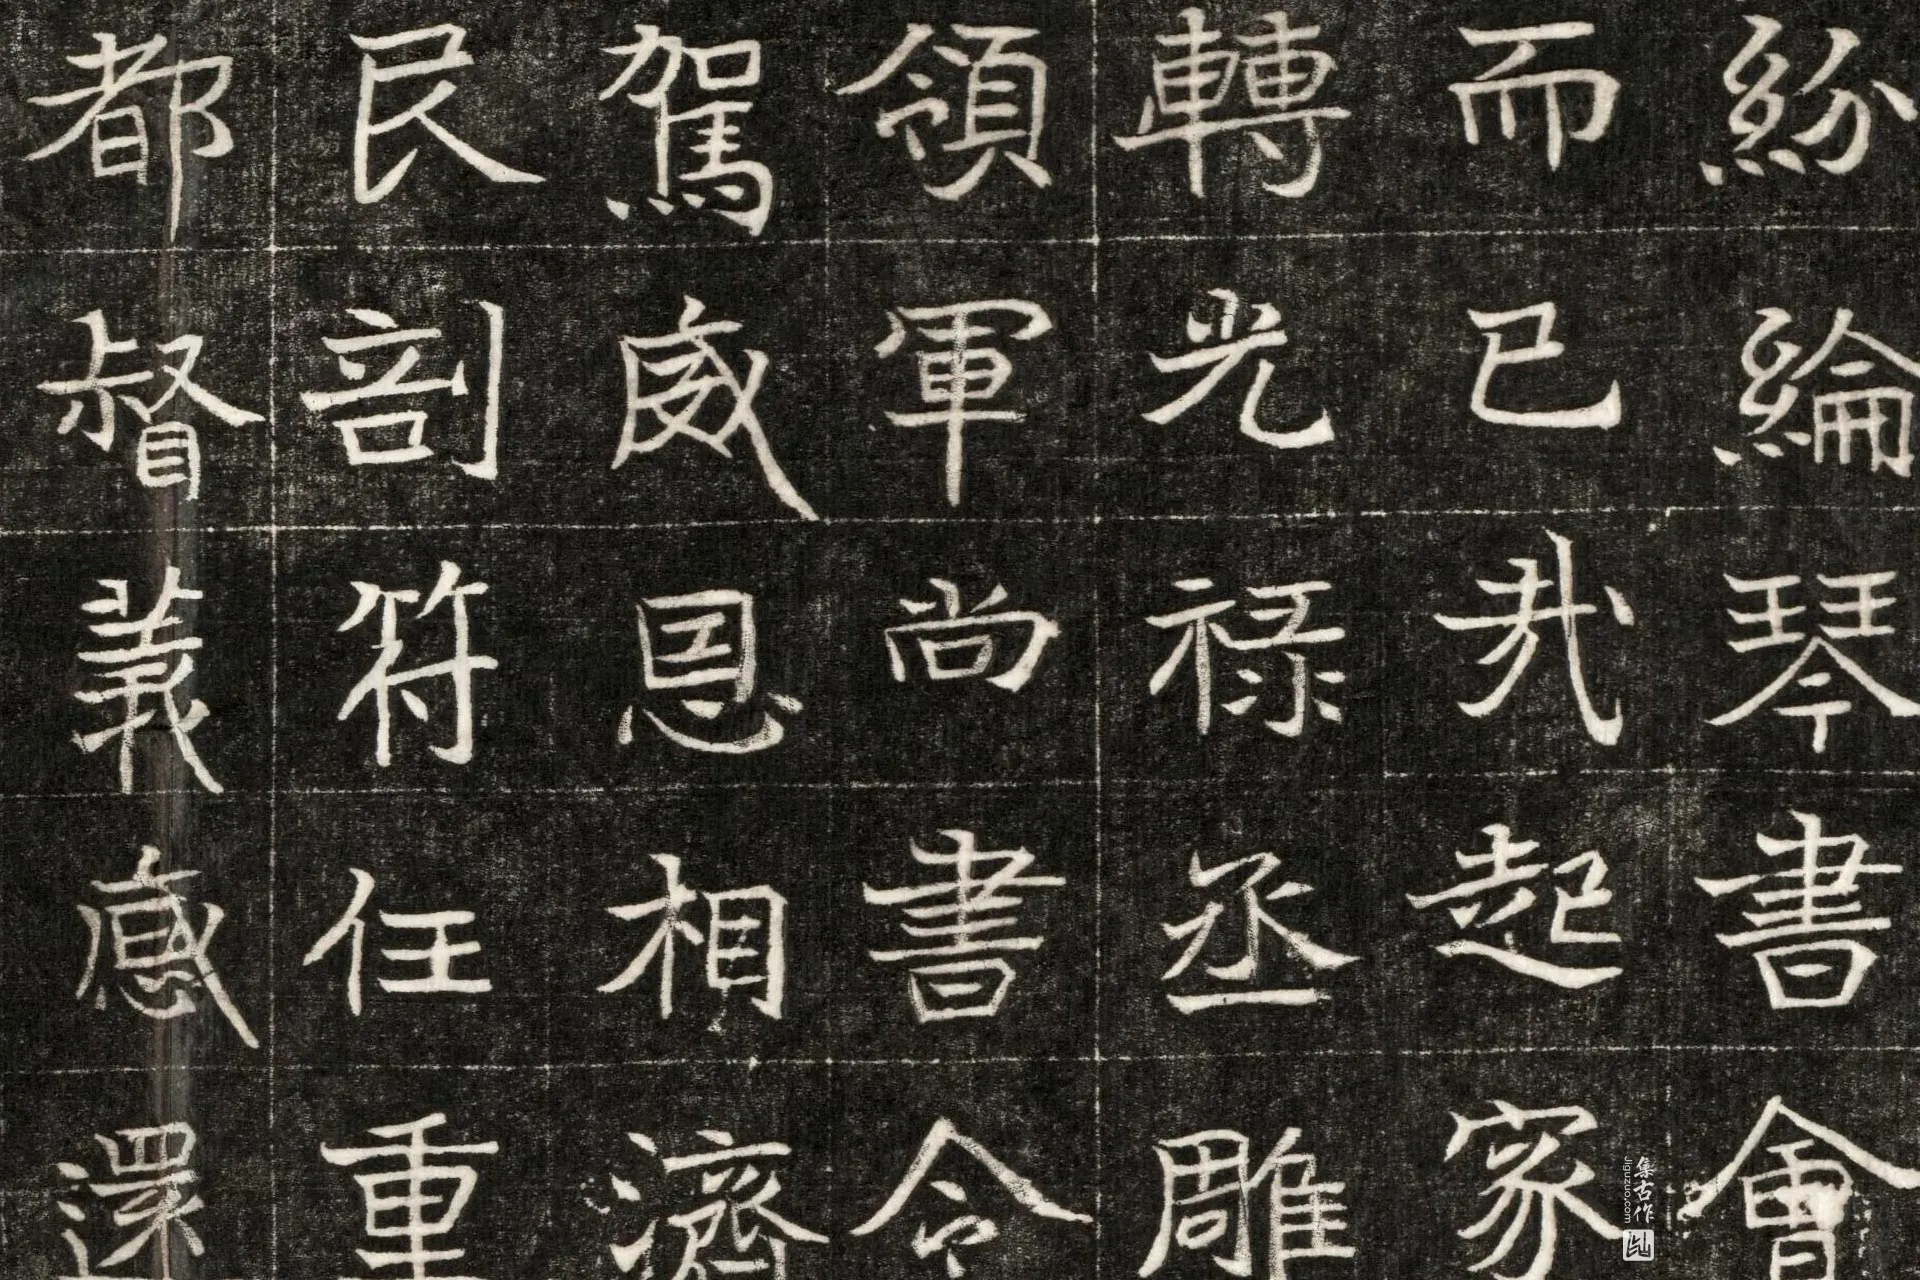 紛綸琴書會
而已哉起家
轉光祿丞雕
領軍尚書令
駕威恩相濟
艮剖符任重
都督義感還
集古作
Jiguzuo.com